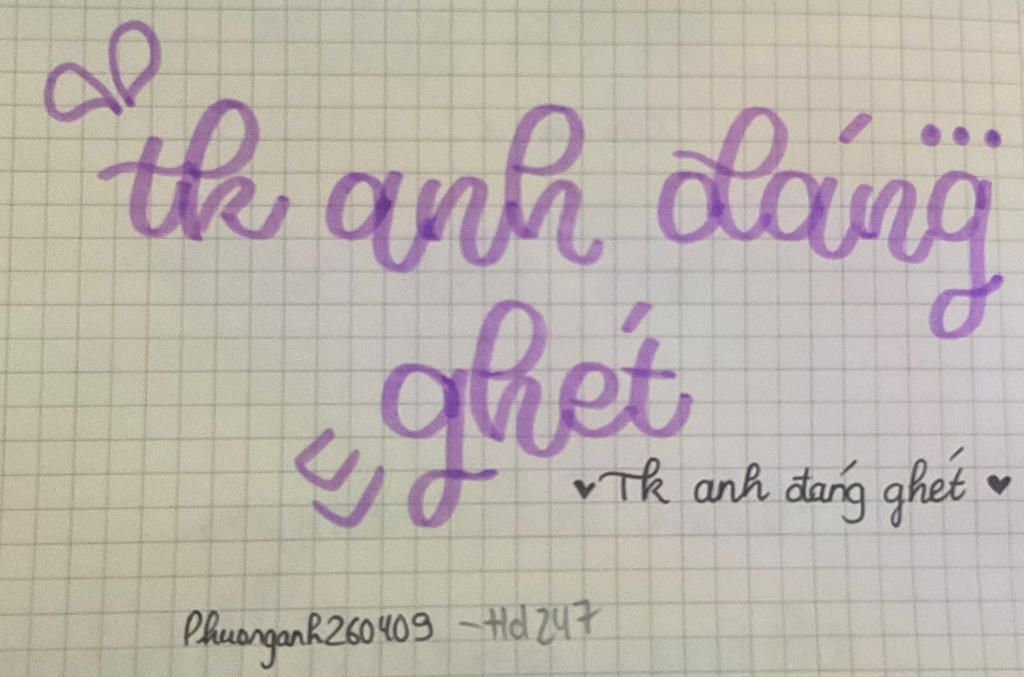 tk anh đáng...
ghét
♥Tk anh đáng ghét ♥
Phuonganh260409 -Hd247